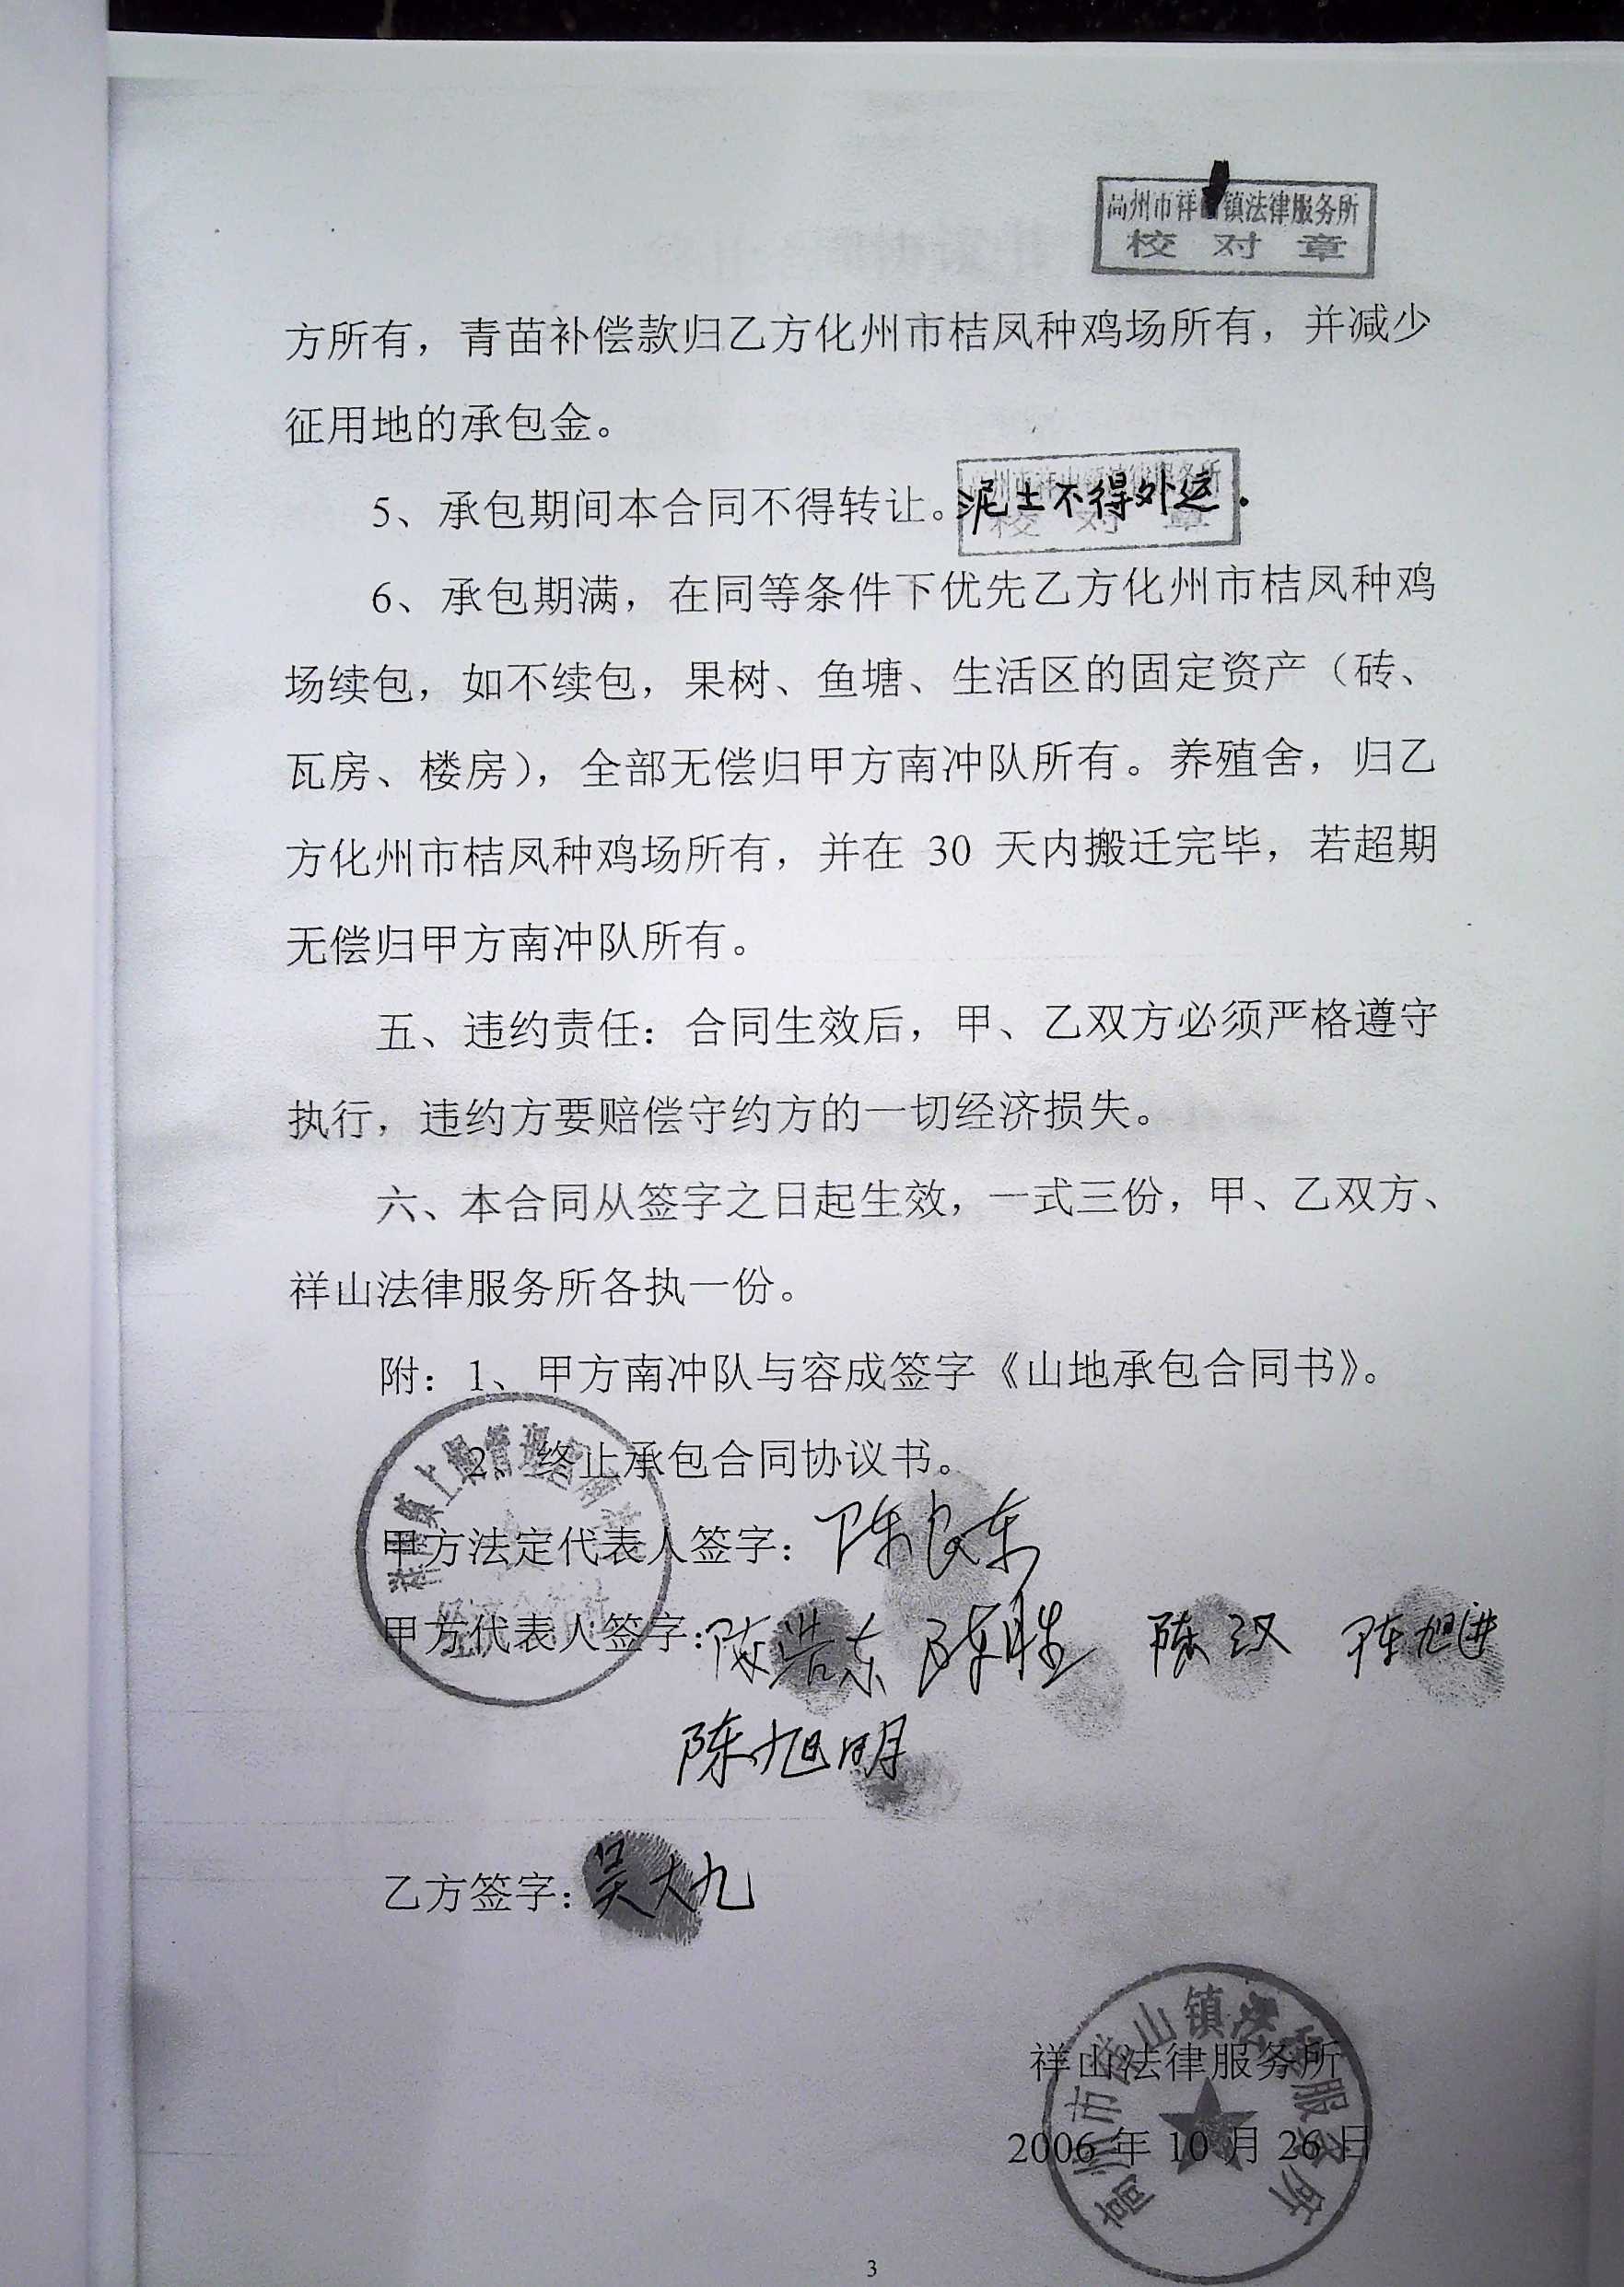 高州市祥山镇法律服务所
校对章
方所有，青苗补偿款归乙方化州市桔凤种鸡场所有，并减少
征用地的承包金。
5、承包期间本合同不得转让。泥土不得外运.
6、承包期满，在同等条件下优先乙方化州市桔凤种鸡
场续包，如不续包，果树、鱼塘、生活区的固定资产（砖、
瓦房、楼房），全部无偿归甲方南冲队所有。养殖舍，归乙
方化州市桔凤种鸡场所有，并在 30 天内搬迁完毕，若超期
无偿归甲方南冲队所有。
五、违约责任：合同生效后，甲、乙双方必须严格遵守
执行，违约方要赔偿守约方的一切经济损失。
六、本合同从签字之日起生效，一式三份，甲、乙双方、
祥山法律服务所各执一份。
附：1、甲方南冲队与容成签字《山地承包合同书》。
2、终止承包合同协议书。
甲方法定代表人签字：陈良东
甲方代表人签字：陈浩东 陈胜 陈汉 陈旭进
陈旭明
乙方签字：吴大九
祥山法律服务所
2006 年 10 月 26 日
高州市祥山镇法律服务所
3